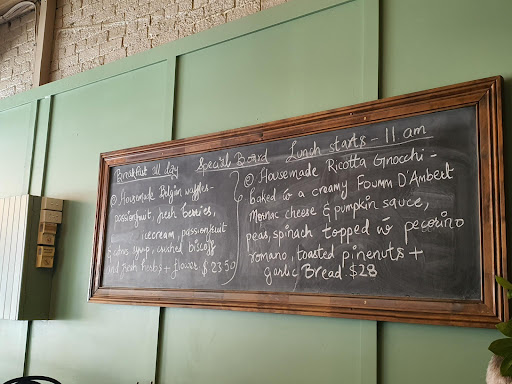 Breakfast all day
Special Board
Lunch starts - 11 am
① Housemade Belgian waffles -
passionfruit, fresh berries,
icecream, passionfruit
& citrus syrup, crushed biscoff
and fresh herbs + flower $ 23.50
② Housemade Ricotta Gnocchi -
baked w a creamy Foumn D'Ambert
Mornac cheese & pumpkin sauce,
peas, spinach topped w pecorino
romano, toasted pinenuts +
garlic Bread $28